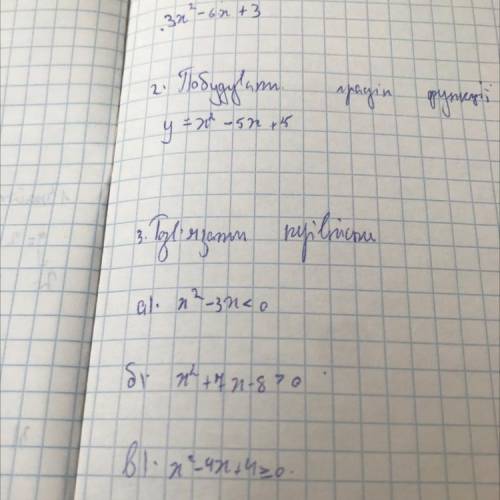 3x² - 6x + 3
2. Побудувати графік функції
y = x² - 5x + 5
3. Розв'язати нерівність
а). x² - 3x < 0
б). x² + 7x - 8 > 0
в). x² - 4x + 4 ≥ 0.